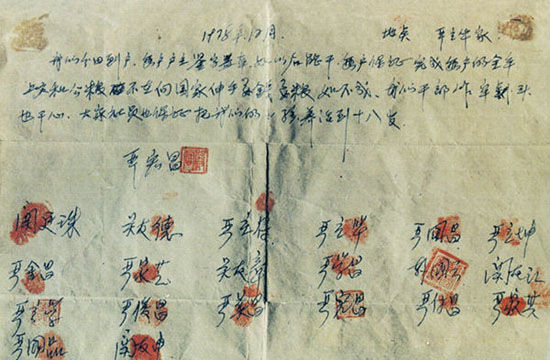 1978年12月. 地点 严立华家
我们分田到户,每户户主签字盖章,如以后能干,每户保证完成每户的全年
上交和公粮 不在向国家伸手要钱要粮,如不成,我们干部作牢刹头
也干心,大家社员也保证把我们的小孩养活到十八岁
严宏昌
关廷珠 关友德 严立符 严立华 严国昌 严立坤
严金昌 严家芝 关友章 严学昌 韩国云 关友江
严立学 严俊昌 严美昌 严宏昌 严付昌 严家其
严国品 关友申